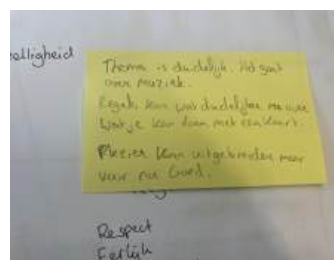 elligheid
Thema is duidelijk. Het gaat
over muziek.
Regels kan wat duidelijker maken
wat je kan doen met een kaart.
Plezier kan uitgebreider maar
voor nu Goed.
Respect
Eerlijk